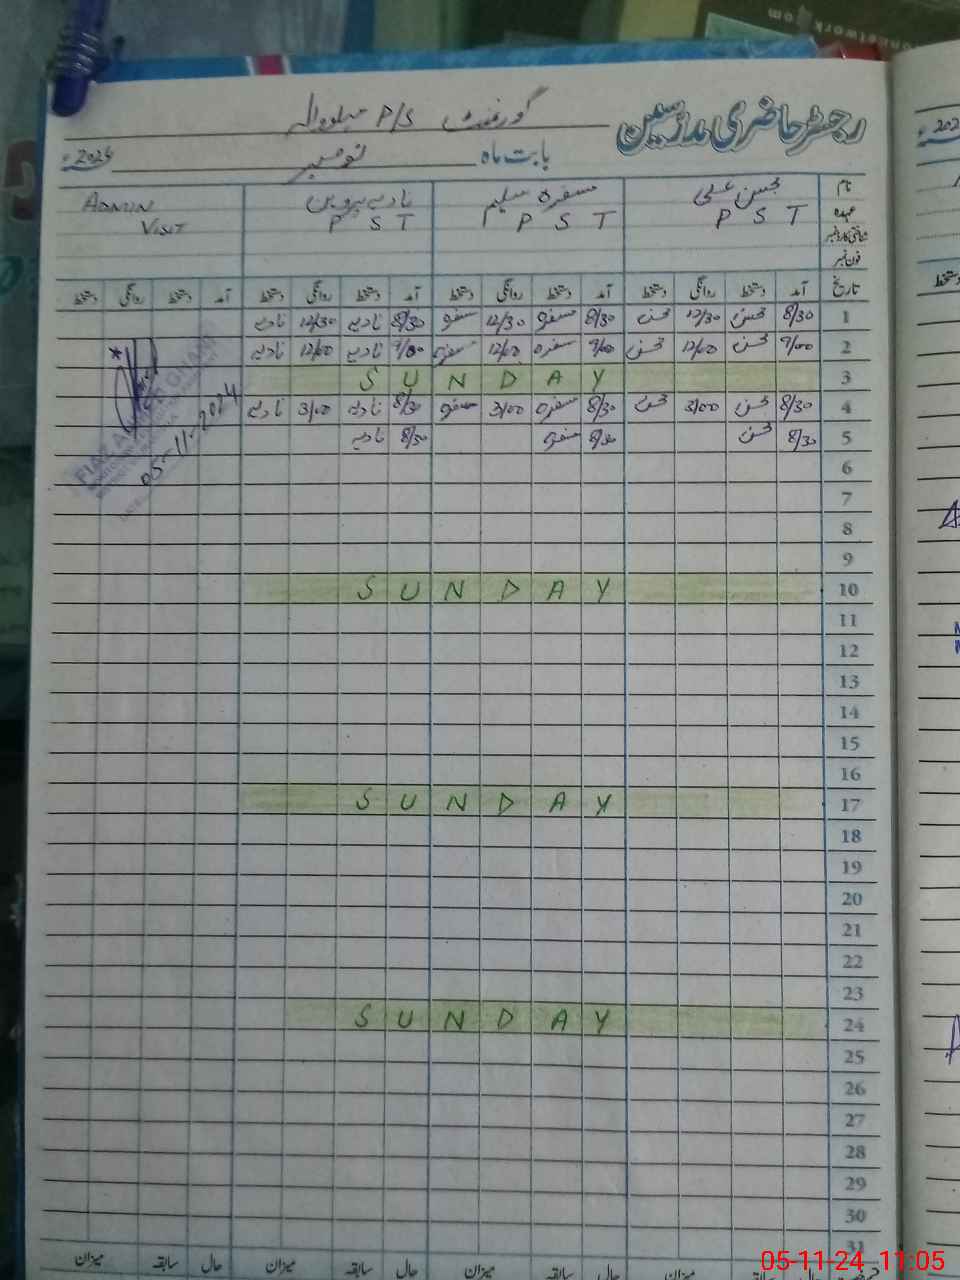 رجسٹر حاضری مدرسین
گورنمنٹ P/S
بابت ماہ نومبر 2024ء
نام محسن علی مسفرہ سلیم نادیہ پروین ADMIN
عہدہ P S T P S T P S T VISIT
شناختی کارڈ نمبر
فون نمبر
تاریخ آمد دستخط روانگی دستخط آمد دستخط روانگی دستخط آمد دستخط روانگی دستخط آمد دستخط روانگی دستخط
1 8/30 محسن 12/30 محسن 8/30 مسفرہ 12/30 مسفرہ 8/30 نادیہ 12/30 نادیہ
2 9/00 محسن 12/00 محسن 9/00 مسفرہ 12/00 مسفرہ 9/00 نادیہ 12/00 نادیہ
3 S U N D A Y
4 8/30 محسن 3/00 محسن 8/30 مسفرہ 3/00 مسفرہ 8/30 نادیہ 3/00 نادیہ
5 8/30 محسن 8/30 مسفرہ 8/30 نادیہ
05-11-2024
6
7
8
9
10 S U N D A Y
11
12
13
14
15
16
17 S U N D A Y
18
19
20
21
22
23
24 S U N D A Y
25
26
27
28
29
30
31
حال سابقہ میزان حال سابقہ میزان حال سابقہ میزان حال سابقہ میزان
05-11-24 11:05